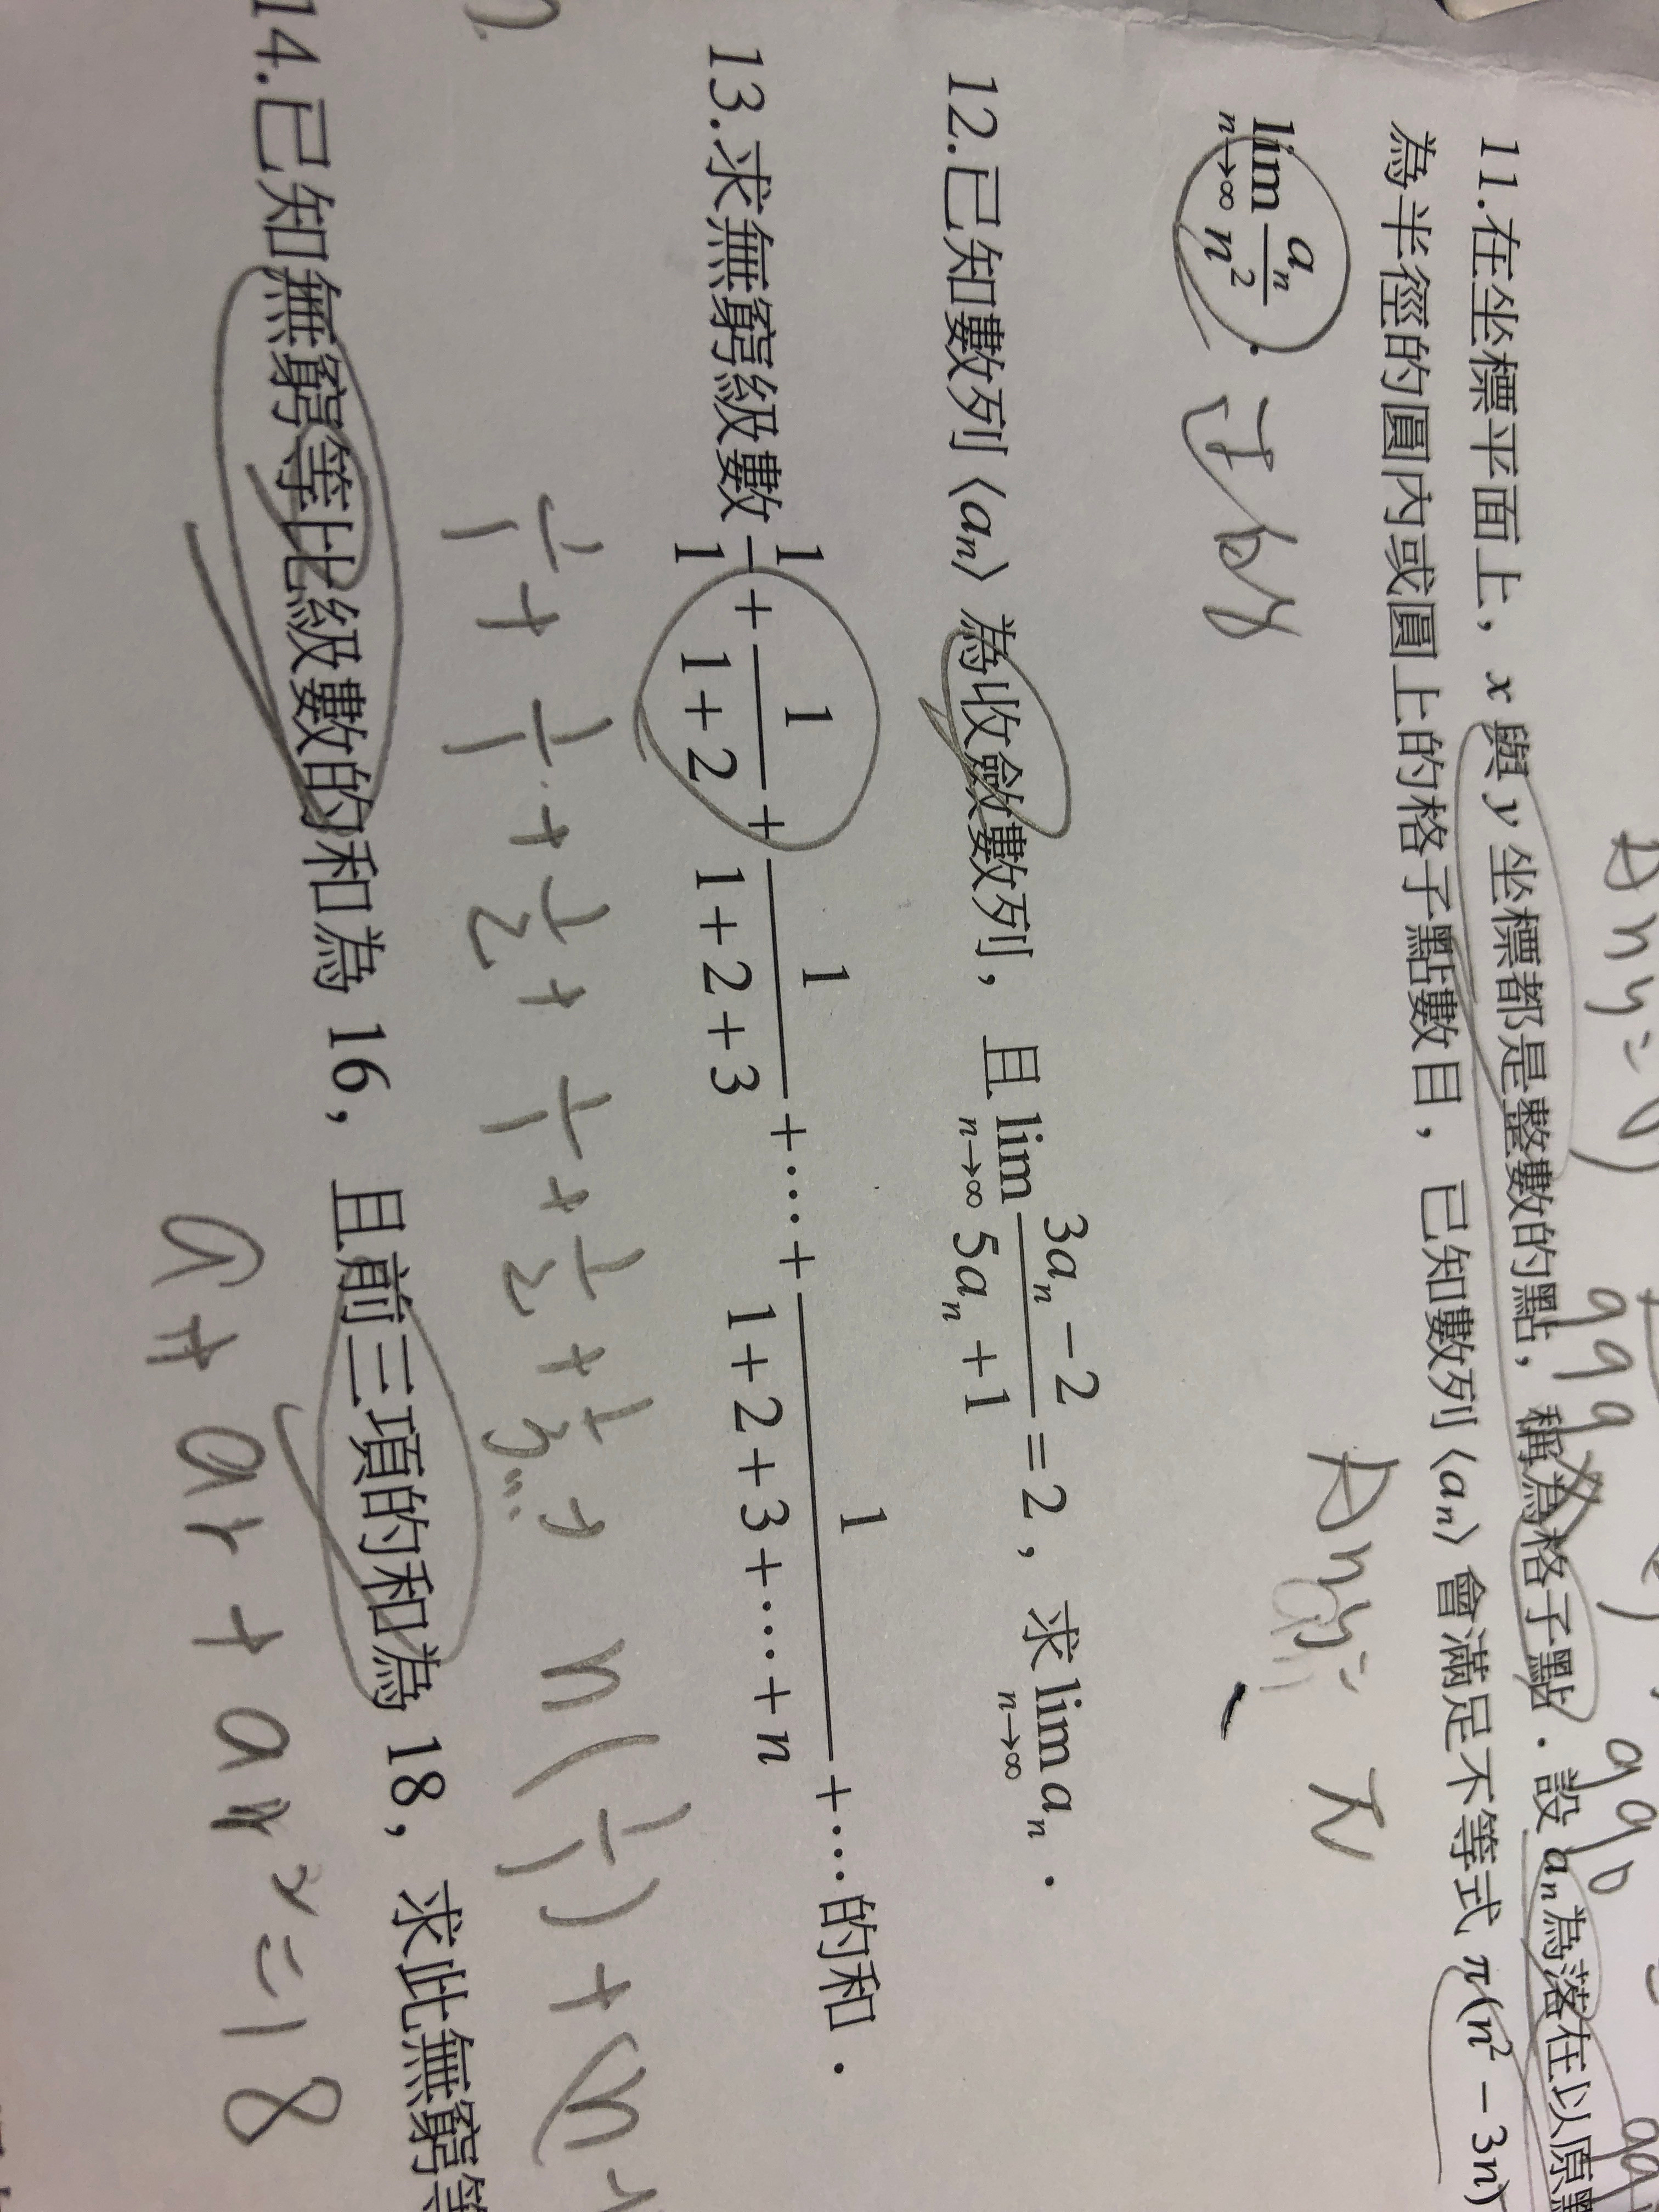 11.在坐標平面上，x 與 y 坐標都是整數的點，稱為格子點．設 aₙ 為落在以原
為半徑的圓內或圓上的格子點數目，已知數列〈aₙ〉會滿足不等式 π(n² − 3n)
lim n→∞ aₙ/n²．
12.已知數列〈aₙ〉為收斂數列，且 lim n→∞ (3aₙ − 2)/(5aₙ + 1) = 2，求 lim n→∞ aₙ．
13.求無窮級數 1/1 + 1/(1+2) + 1/(1+2+3) + ⋯ + 1/(1+2+3+⋯+n) + ⋯ 的和．
1/1 + 1/1 + 1/2 + 1/1 + 1/2 + 1/3 ... + n(1/1) + (n-
14.已知無窮等比級數的和為 16，且前三項的和為 18，求此無窮等
a + ar + ar² = 18